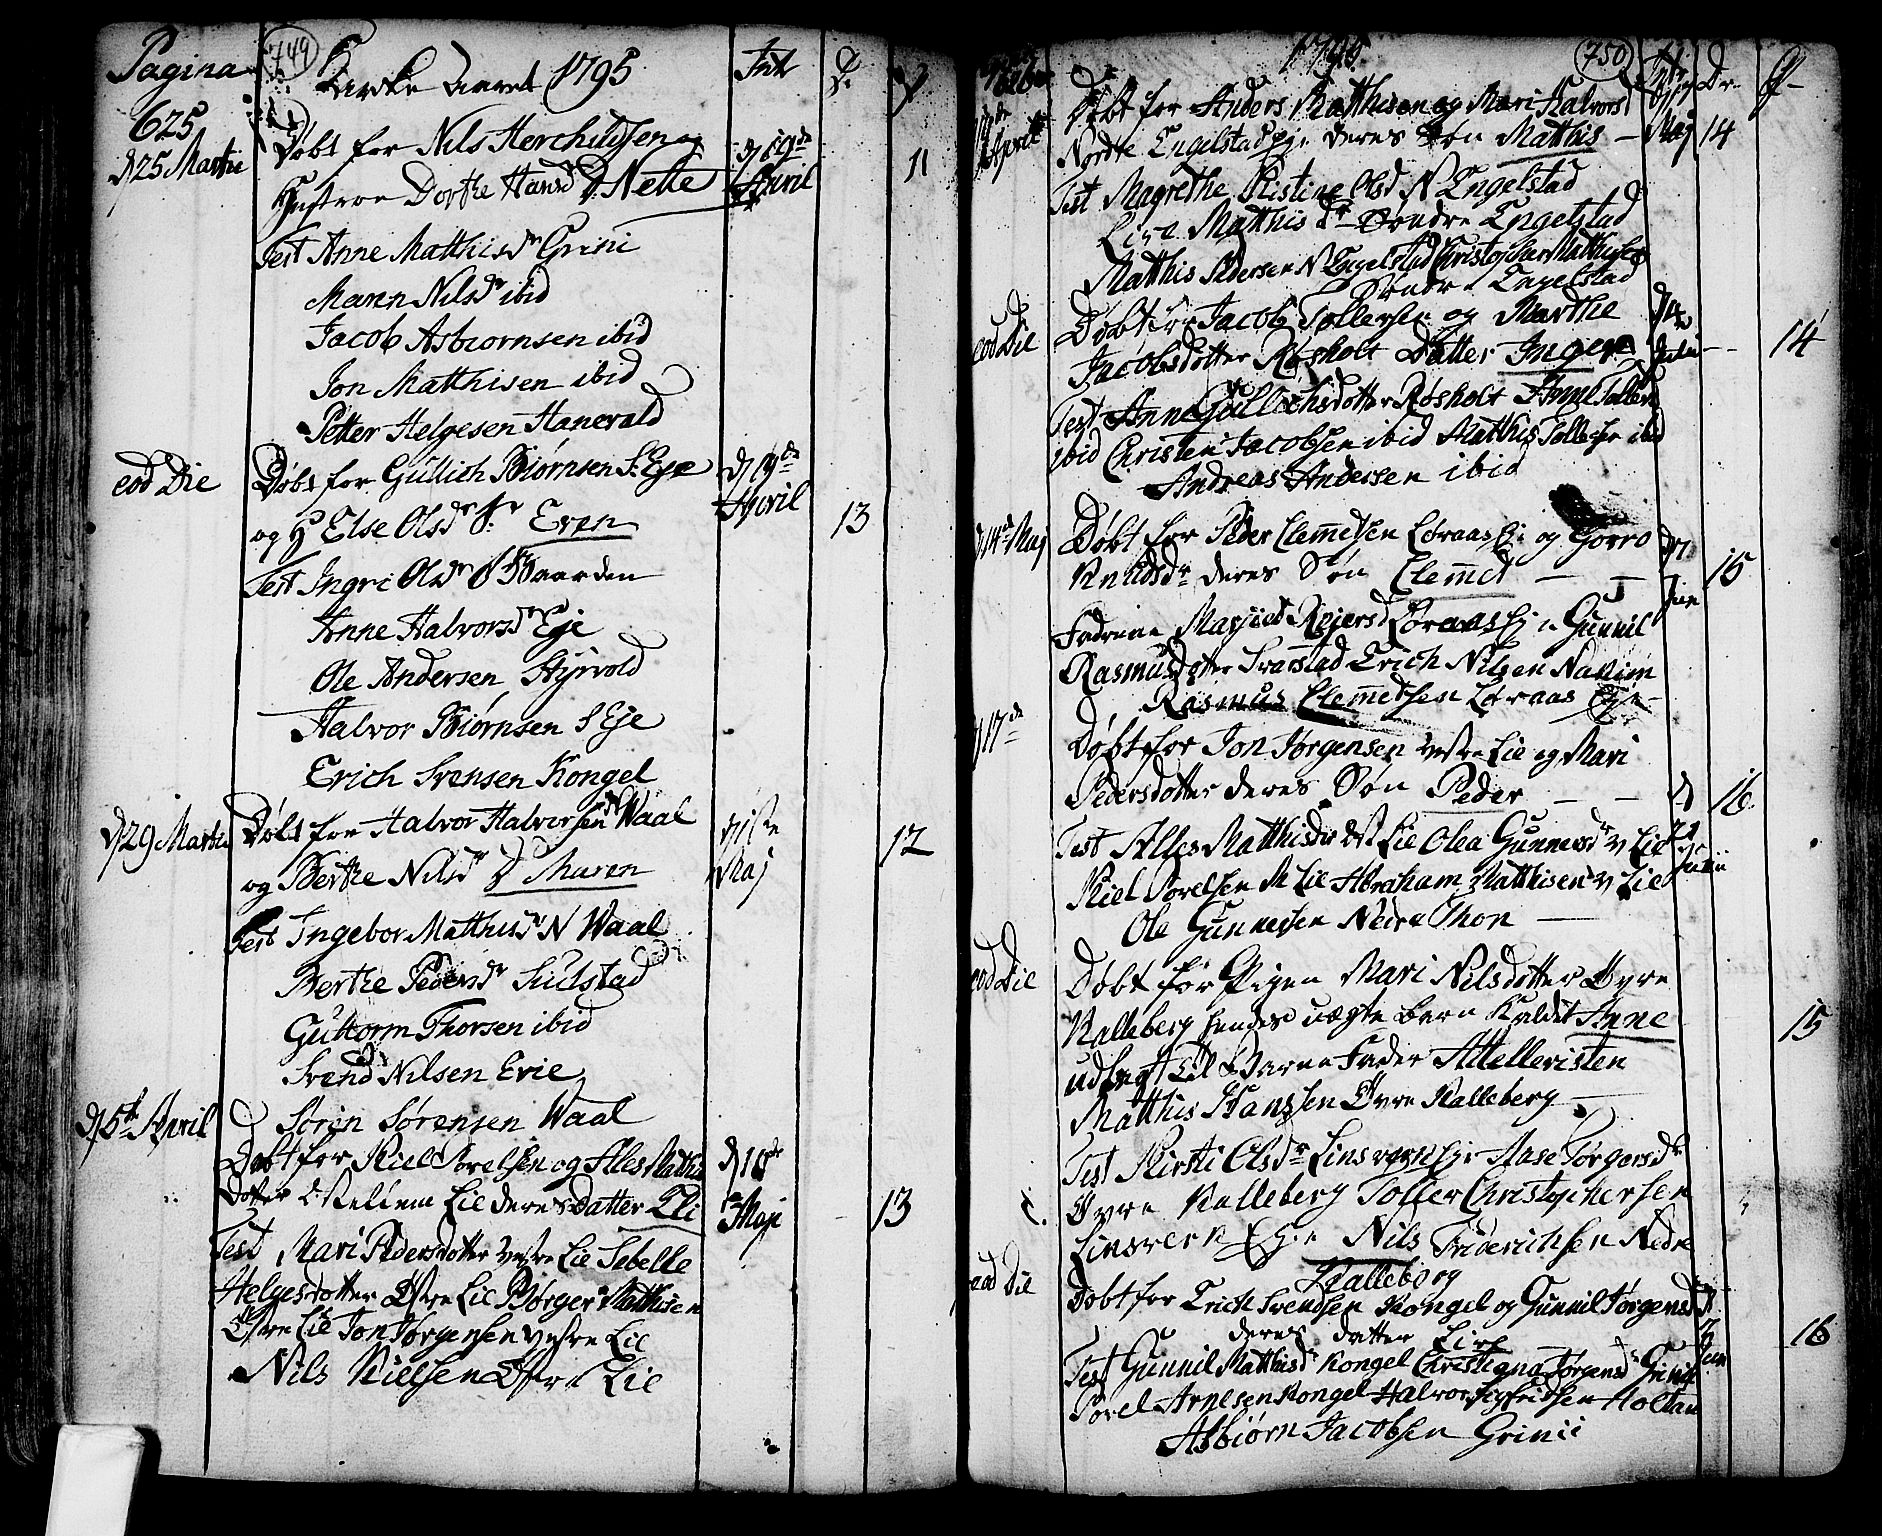 Pagina
749
Kirke Aaret 1795
Int
D.
P
625
d 25 Martii
Døbt for Nils Herchildsen og
Hustroe Dorthe Hansd D. Nette
d 19de April
11
Test Anne Matthisdr Grini
Maren Nilsdr ibid
Jacob Asbiørnsen ibid
Jon Matthisen ibid
Petter Helgesen Hanevald
eod Die
Døbt for Gullich Biørnsen S. Eje
og H Else Olsdr S. Even
d 19de April
13
Test Ingri Olsdr Waarden
Anne Halvorsdr Eje
Ole Andersen Styrvold
Halvor Biørnsen S Eje
Erich Svensen Kongel
d 29 Martii
Døbt for Halvor Halvorsen Waal
og Berthe Nilsdr D Maren
d 1ste Maj
12
Test Ingebor Matthisdr N Waal
Berthe Pedersdr Sulstad
Guttorm Thorsen ibid
Svend Nilsen Evie
Søren Sørensen Waal
d 5te April
Døbt for Kiel Torelsen og Alles Matthis
Dotter Mellem Lie deres Datter Eli
d 10de Maji
13
Test Mari Pedersdotter vestre Lie Sebelle
Helgesdotter Østre Lie Børger Matthisen
Østre Lie Jon Jørgensen vestre Lie
Nils Kielsen Østre Lie
626
1795
750
Dr.
P
April
Døbt for Anders Matthisen og Mari Halvorsd
Nordre Engelstad Eje deres Søn Matthis
Maj
14
Test Magrethe Kistine Olsd N Engelstad
Live Matthisdr Søndre Engelstad
Matthis Pedersen N Engelstad Christopher Matthisen
Søndre Engelstad
eod Die
Døbt for Jacob Tollefsen og Marthe
Jacobsdotter Røsholt Datter Inger
14
Test Anne Gullichsdotter Røsholt Anne Tollefs
ibid Christen Jacobsen ibid Matthis Tollefsen ibid
Andreas Andersen ibid
d 14de Maj
Døbt for Peder Clemetsen Løraas Eje og Gorro
Knudsdr deres Søn Clemet
Jun
15
Fadrene Marjied Rejersd Løraas Eje Gunnil
Rasmusdotter Svarstad Erich Nilsen Nakim
Rasmus Clemetsen Løraas Eje
d 17de
Døbt for Jon Jørgensen vestre Lie og Mari
Pedersdotter deres Søn Peder
16
Test Alles Matthisdr Øst Lie Olea Gunnersdr v Lie
Kiel Torelsen M Lie Abraham Matthisen v Lie
Ole Gunnersen Nedre Thon
eod Die
Døbt for Pigen Mari Nilsdotter Øvre
Kalleberg hendes uægte Barn Kaldet Anne
15
udlagt til Barne Fader Attelleristen
Matthis Hanssen Øvre Kalleberg
Test Kirsti Olsdr Linsverk Eje Aase Torgersdr
Øvre Kalleberg Tollef Christophersen
Linsverk Eje Nils Friderichsen Nedre
Kalleberg
eod Die
Døbt for Erich Svendsen Kongel og Gunnil Jørgensd
deres datter Live
Jun
16
Test Gunnil Matthisdr Kongel Christiana Jørgensdr
Torel Arnesen Kongel Halvor Sigfridsen Holtan
Asbiørn Jacobsen Grinii